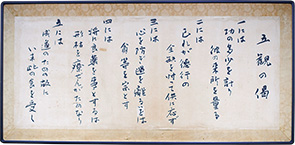 五観の偈
一には
功の多少を計り
彼の来所を量る
二には
己れが徳行の
全欠を忖って供に応ず
三には
心を防ぎ過を離るるは
貪等を宗とす
四には
将に良薬を事とするは
形枯を療ぜんがためなり
五には
成道のための故に
いま此の食を受く